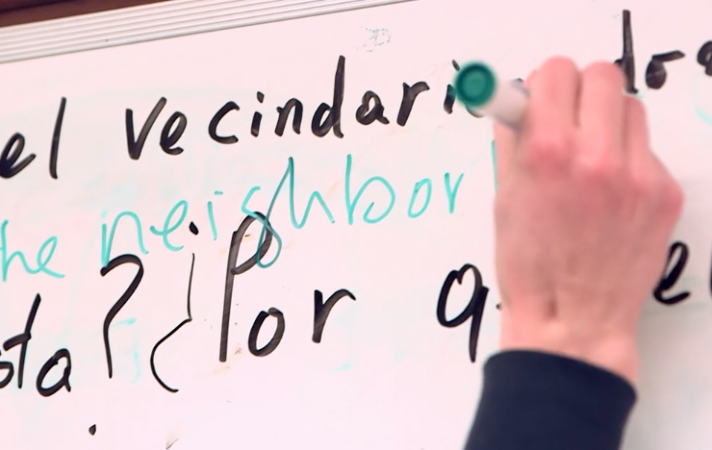 el vecindari
the neighbor
sta? ¿Por q